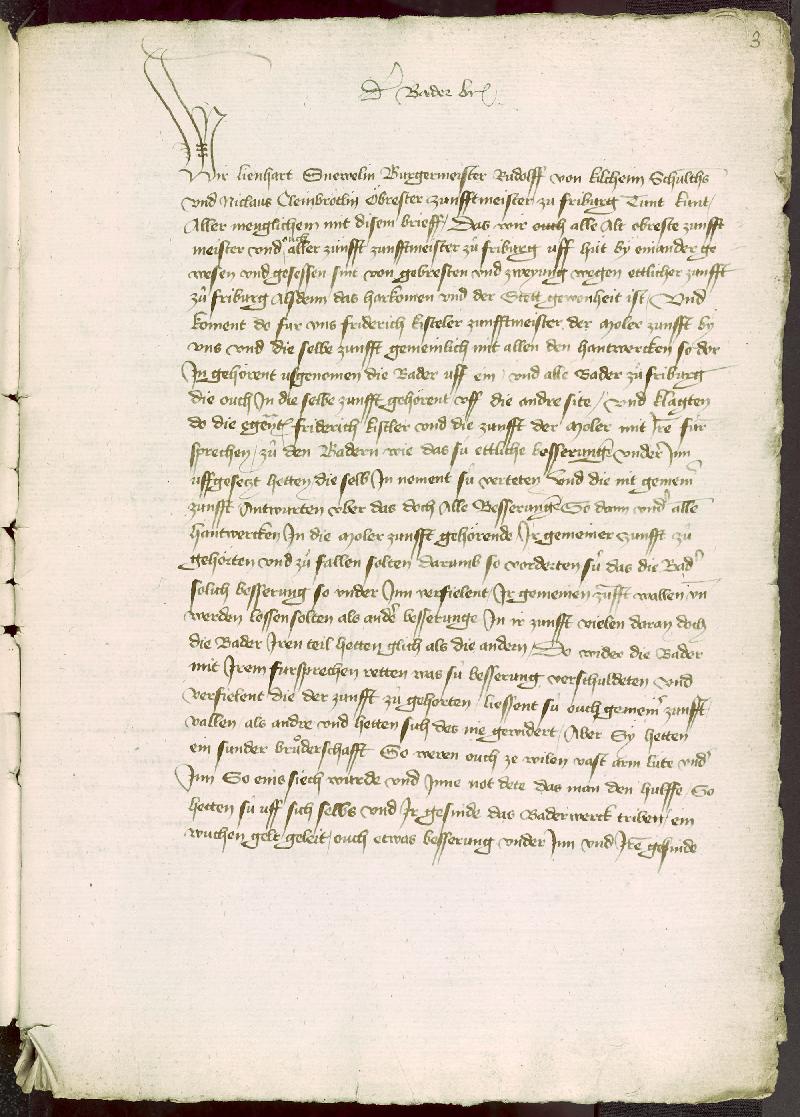 3
d' Bader br
Wir lienhart Snewelin Burgermeister Rudolff von kilchenn Schulths
vnd Niclaus Cleinbrotlin Obrester zunfftmeister zu friburg Tunt kunt /
Aller menglichem mit disem brieff / Das wir ouch alle Alt obreste zunfft
meister vnd ouch aller zunfft zunfftmeister zů friburg uff hut by einander ge
wesen vnd gesessen sint von gebresten vnd zweyung wegen ettlicher zunfft
zů friburg Alsdenn das harkomen vnd der Stett gewonheit ist / Vnd
koment do fur vns friderich kisteler zunfftmeister der Moler zunfft by
vns vnd die selbe zunfft gemeinlich mit allen den hantwercken so dor
In gehörent usgenomen die Bader uff ein / vnd alle Bader zů friburg
die ouch In die selbe zunfft gehörent vff die andre site / vnd klagten
do die egen̄t friderich kistler vnd die zunfft der Moler mit Irē fur
sprechen / zů den Badern wie das sú ettliche besserunge vnder Inn
uffgesetzt hetten die selb In noment sú verteten vnd die nit gemein'
zunfft Antwurten vber das doch Alle Besserunge So dann vnd' alle
hantwercken In die Moler zunfft gehörende Ir gemeiner zunfft zů
gehorten vnd zů fallen solten darumb so vorderten sú das die Bad'
solich besserung so vnder Inn verfielent / Ir gemeinen zunfft vallen vn̄
werden lossen solten als and' besserunge In ir zunfft vielen daran doch
die Bader Iren teil hetten glich als die andern / Do wider die Bader
mit Irem fursprechen retten was sú besserung verschuldeten vnd
verfielent die der zunfft zů gehorten / liessent sú ouch gemein' zunfft
vallen / als andre vnd hetten sich des nie gewidert / Aber Sy hetten
ein sunder brůderschafft So weren ouch ze wilen vast arm lute vnd'
Inn So eins siech wurde vnd Inne not dete das man den hulffe / So
hetten sú uff sich selbs vnd Ir gesinde das Baderwerck triben / ein
wuchen gelt geleit / ouch etwas besserung vnder Inn vnd Irē gesinde